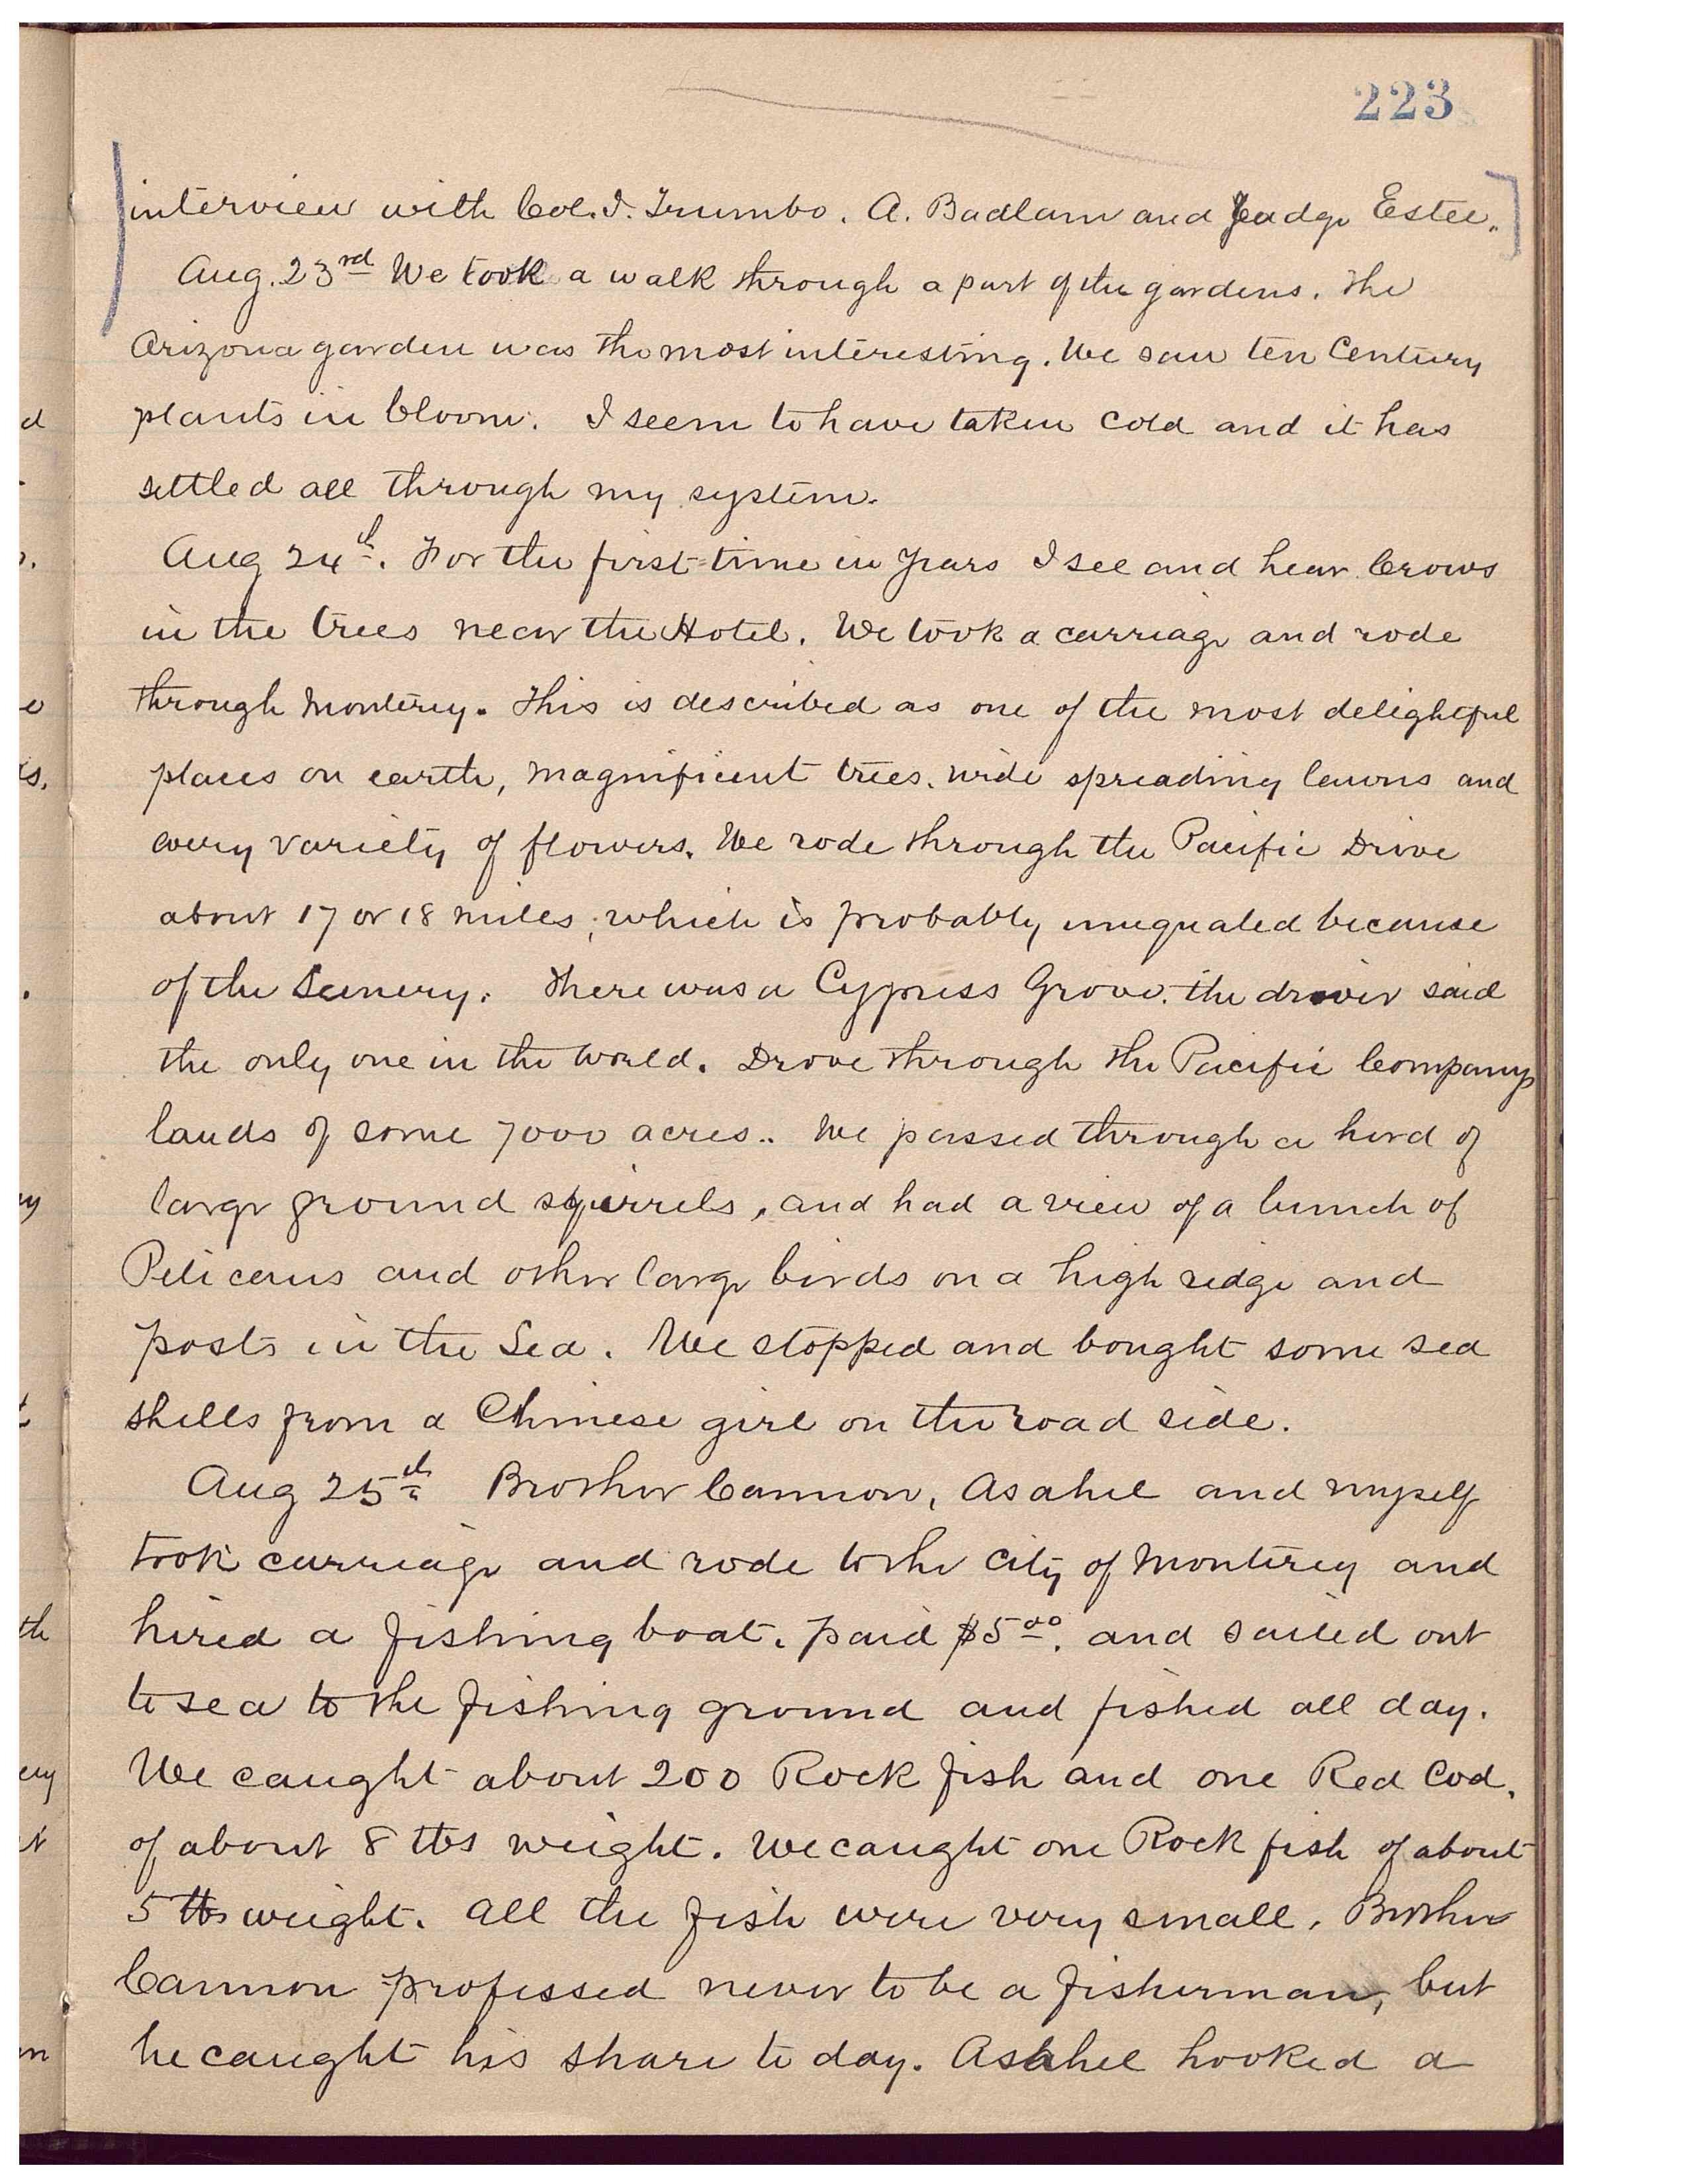 223
interview with Col. I. Trumbo. A. Badlam and Judge Estee.
Aug. 23rd We took a walk through a part of the gardens. The
Arizona garden was the most interesting. We saw ten Century
plants in bloom. I seem to have taken cold and it has
settled all through my system.
Aug 24th. For the first time in years I see and hear Crows
in the trees near the Hotel. We took a carriage and rode
through Monterey. This is described as one of the most delightful
places on earth, magnificent trees. wide spreading lawns and
every variety of flowers. We rode through the Pacific Drive
about 17 or 18 miles, which is probably unequaled because
of the Scenery. There was a Cypress Grove. the driver said
the only one in the world. Drove through the Pacific Companys
lands of some 7000 acres.. We passed through a herd of
large ground squirrels, and had a view of a bunch of
Pelicans and other large birds on a high redge and
posts in the Sea. We stopped and bought some sea
shells from a Chinese girl on the road side.
Aug 25th Brother Cannon, Asahel and myself
took carriage and rode to the city of Monterey and
hired a fishing boat. paid $5.00. and sailed out
to sea to the fishing ground and fished all day.
We caught about 200 Rock fish and one Red Cod.
of about 8 lbs weight. We caught one Rock fish of about
5 lbs weight. All the fish were very small. Brother
Cannon professed never to be a fisherman, but
he caught his share to day. Asahel hooked a